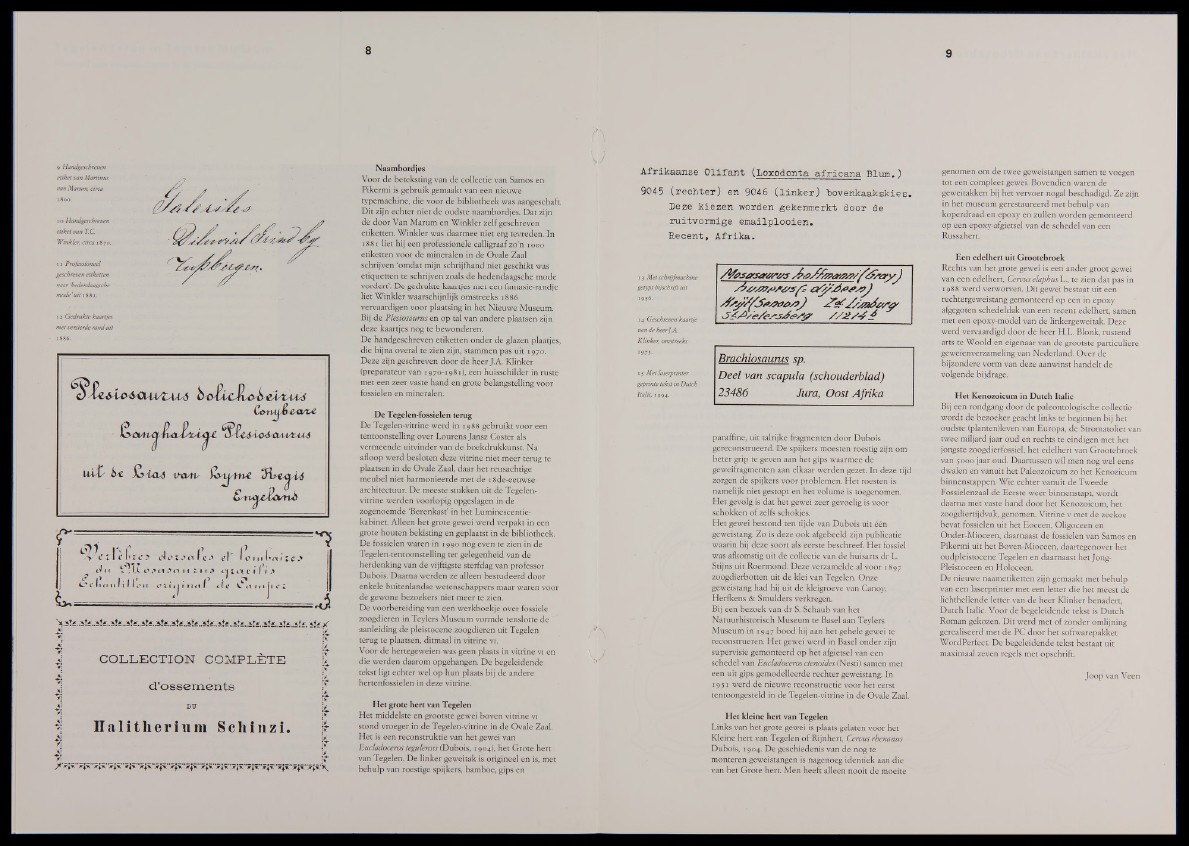 8
9 Handgeschreven
etiket van Martinus
van Marum, circa
1800.
10 Handgeschreven
etiket van T.C.
Winkler, circa 1870.
11 Professioneel
geschreven etiketten
naar 'hedendaagsche
mode' uit 1881.
12 Gedrukte kaartjes
met versierde rand uit
1886.
Plesiosaurus dolichodeirus
Conybeare
Langhalzige Plesiosaurus
uit de Lias van Lyme Regis
Engeland
Vertèbres dorsales et lombaires
du Mosasaurus gracilis
Echantillon original de Camper
COLLECTION COMPLÈTE
d'ossements
DU
Halitherium Schinzi.
Naambordjes
Voor de beteksting van de collectie van Samos en
Pikermi is gebruik gemaakt van een nieuwe
typemachine, die voor de bibliotheek was aangeschaft.
Dit zijn echter niet de oudste naambordjes. Dat zijn
de door Van Marum en Winkler zelf geschreven
etiketten. Winkler was daarmee niet erg tevreden. In
1881 liet hij een professionele calligraaf zo'n 1000
etiketten voor de mineralen in de Ovale Zaal
schrijven 'omdat mijn schrijfhand niet geschikt was
etiquetten te schrijven zoals de hedendaagsche mode
vordert'. De gedrukte kaartjes met een fantasie-randje
liet Winkler waarschijnlijk omstreeks 1886
vervaardigen voor plaatsing in het Nieuwe Museum.
Bij de Plesiosaurus en op tal van andere plaatsen zijn
deze kaartjes nog te bewonderen.
De handgeschreven etiketten onder de glazen plaatjes,
die bijna overal te zien zijn, stammen pas uit 1970.
Deze zijn geschreven door de heer J.A. Klinker
(preparateur van 1970-1981), een huisschilder in ruste
met een zeer vaste hand en grote belangstelling voor
fossielen en mineralen.
De Tegelen-fossielen terug
De Tegelen-vitrine werd in 1988 gebruikt voor een
tentoonstelling over Lourens Jansz Coster als
vermeende uitvinder van de boekdrukkunst. Na
afloop werd besloten deze vitrine niet meer terug te
plaatsen in de Ovale Zaal, daar het reusachtige
meubel niet harmonieerde met de 18de-eeuwse
architectuur. De meeste stukken uit de Tegelen-
vitrine werden voorlopig opgeslagen in de
zogenoemde 'Berenkast' in het Luminescentie-
kabinet. Alleen het grote gewei werd verpakt in een
grote houten bekisting en geplaatst in de bibliotheek.
De fossielen waren in 1990 nog even te zien in de
Tegelen-tentoonstelling ter gelegenheid van de
herdenking van de vijftigste sterfdag van professor
Dubois. Daarna werden ze alleen bestudeerd door
enkele buitenlandse wetenschappers maar waren voor
de gewone bezoekers niet meer te zien.
De voorbereiding van een werkboekje over fossiele
zoogdieren in Teylers Museum vormde tenslotte de
aanleiding de pleistocene zoogdieren uit Tegelen
terug te plaatsen, ditmaal in vitrine VI.
Voor de hertegeweien was geen plaats in vitrine VI en
die werden daarom opgehangen. De begeleidende
tekst ligt echter wel op hun plaats bij de andere
hertenfossielen in deze vitrine.
Het grote hert van Tegelen
Het middelste en grootste gewei boven vitrine VI
stond vroeger in de Tegelen-vitrine in de Ovale Zaal.
Het is een reconstruktie van het gewei van
Eucladoceros tegulensis (Dubois, 1904), het Grote hert
van Tegelen. De linker geweitak is origineel en is, met
behulp van roestige spijkers, bamboe, gips en
9
Afrikaanse Olifant (Loxodonta africana Blum.)
9045 (rechter) en 9046 (linker) bovenkaakskies.
Deze kiezen worden gekenmerkt door de
ruitvormige emailplooien.
Recent, Afrika.
13 Met schrijfmachine
getypt bijschrift uit
1956.
14 Geschreven kaartje
van de heer J.A.
Klinker, omstreeks
1975.
15 Met laserprinter
geprinte tekst in Dutch
Italic, 1994.
Mosasaurus hoffmanni (Gray)
humerus (= dijbeen)
Krijt (Senoon) Zd. Limburg
St. Pietersberg 11214
Brachiosaurus sp.
Deel van scapula (schouderblad)
23486 Jura, Oost Afrika
paraffine, uit talrijke fragmenten door Dubois
gereconstrueerd. De spijkers moesten roestig zijn om
beter grip te geven aan het gips waarmee de
geweifragmenten aan elkaar werden gezet. In deze tijd
zorgen de spijkers voor problemen. Het roesten is
namelijk niet gestopt en het volume is toegenomen.
Het gevolg is dat het gewei zeer gevoelig is voor
schokken of zelfs schokjes.
Het gewei bestond ten tijde van Dubois uit één
geweistang. Zo is deze ook afgebeeld zijn publicatie
waarin hij deze soort als eerste beschreef. Het fossiel
was afkomstig uit de collectie van de huisarts dr L.
Stijns uit Roermond. Deze verzamelde al voor 1897
zoogdierbotten uit de klei van Tegelen. Onze
geweistang had hij uit de kleigroeve van Canoy,
Herfkens & Smulders verkregen.
Bij een bezoek van dr S. Schaub van het
Natuurhistorisch Museum te Basel aan Teylers
Museum in 1947 bood hij aan het gehele gewei te
reconstrueren. Het gewei werd in Basel onder zijn
supervisie gemonteerd op het afgietsel van een
schedel van Eucladoceros ctenoides (Nesti) samen met
een uit gips gemodelleerde rechter geweistang. In
1951 werd de nieuwe reconstructie voor het eerst
tentoongesteld in de Tegelen-vitrine in de Ovale Zaal.
Het kleine hert van Tegelen
Links van het grote gewei is plaats gelaten voor het
Kleine hert van Tegelen of Rijnhert, Cervus rhenanus
Dubois, 1904. De geschiedenis van de nog te
monteren geweistangen is nagenoeg identiek aan die
van het Grote hert. Men heeft alleen nooit de moeite
genomen om de twee geweistangen samen te voegen
tot een compleet gewei. Bovendien waren de
geweitakken bij het vervoer nogal beschadigd. Ze zijn
in het museum gerestaureerd met behulp van
koperdraad en epoxy en zullen worden gemonteerd
op een epoxy-afgietsel van de schedel van een
Russahert.
Een edelhert uit Grootebroek
Rechts van het grote gewei is een ander groot gewei
van een edelhert, Cervus elaphus L., te zien dat pas in
1988 werd verworven. Dit gewei bestaat uit een
rechtergeweistang gemonteerd op een in epoxy
afgegoten schedeldak van een recent edelhert, samen
met een epoxy-model van de linkergeweitak. Deze
werd vervaardigd door de heer H.L. Blonk, rustend
arts te Woold en eigenaar van de grootste particuliere
geweienverzameling van Nederland. Over de
bijzondere vorm van deze aanwinst handelt de
volgende bijdrage.
Het Kenozoicum in Dutch Italic
Bij een rondgang door de paleontologische collectie
wordt de bezoeker geacht links te beginnen bij het
oudste (planten)leven van Europa, de Stromatoliet van
twee miljard jaar oud en rechts te eindigen met het
jongste zoogdierfossiel, het edelhert van Grootebroek
van 5000 jaar oud. Daartussen wil men nog wel eens
dwalen en vanuit het Paleozoicum zo het Kenozoicum
binnenstappen. Wie echter vanuit de Tweede
Fossielenzaal de Eerste weer binnenstapt, wordt
daarna met vaste hand door het Kenozoicum, het
zoogdiertijdvak, genomen. Vitrine V met de zeekoe
bevat fossielen uit het Eoceen, Oligoceen en
Onder-Mioceen, daarnaast de fossielen van Samos en
Pikermi uit het Boven-Mioceen, daartegenover het
oudpleistocene Tegelen en daarnaast het Jong-
Pleistoceen en Holoceen.
De nieuwe naametiketten zijn gemaakt met behulp
van een laserprinter met een letter die het meest de
lichthellende letter van de heer Klinker benadert,
Dutch Italic. Voor de begeleidende tekst is Dutch
Roman gekozen. Dit werd met of zonder omlijning
gerealiseerd met de PC door het softwarepakket
WordPerfect. De begeleidende tekst bestaat uit
maximaal zeven regels met opschrift.
Joop van Veen